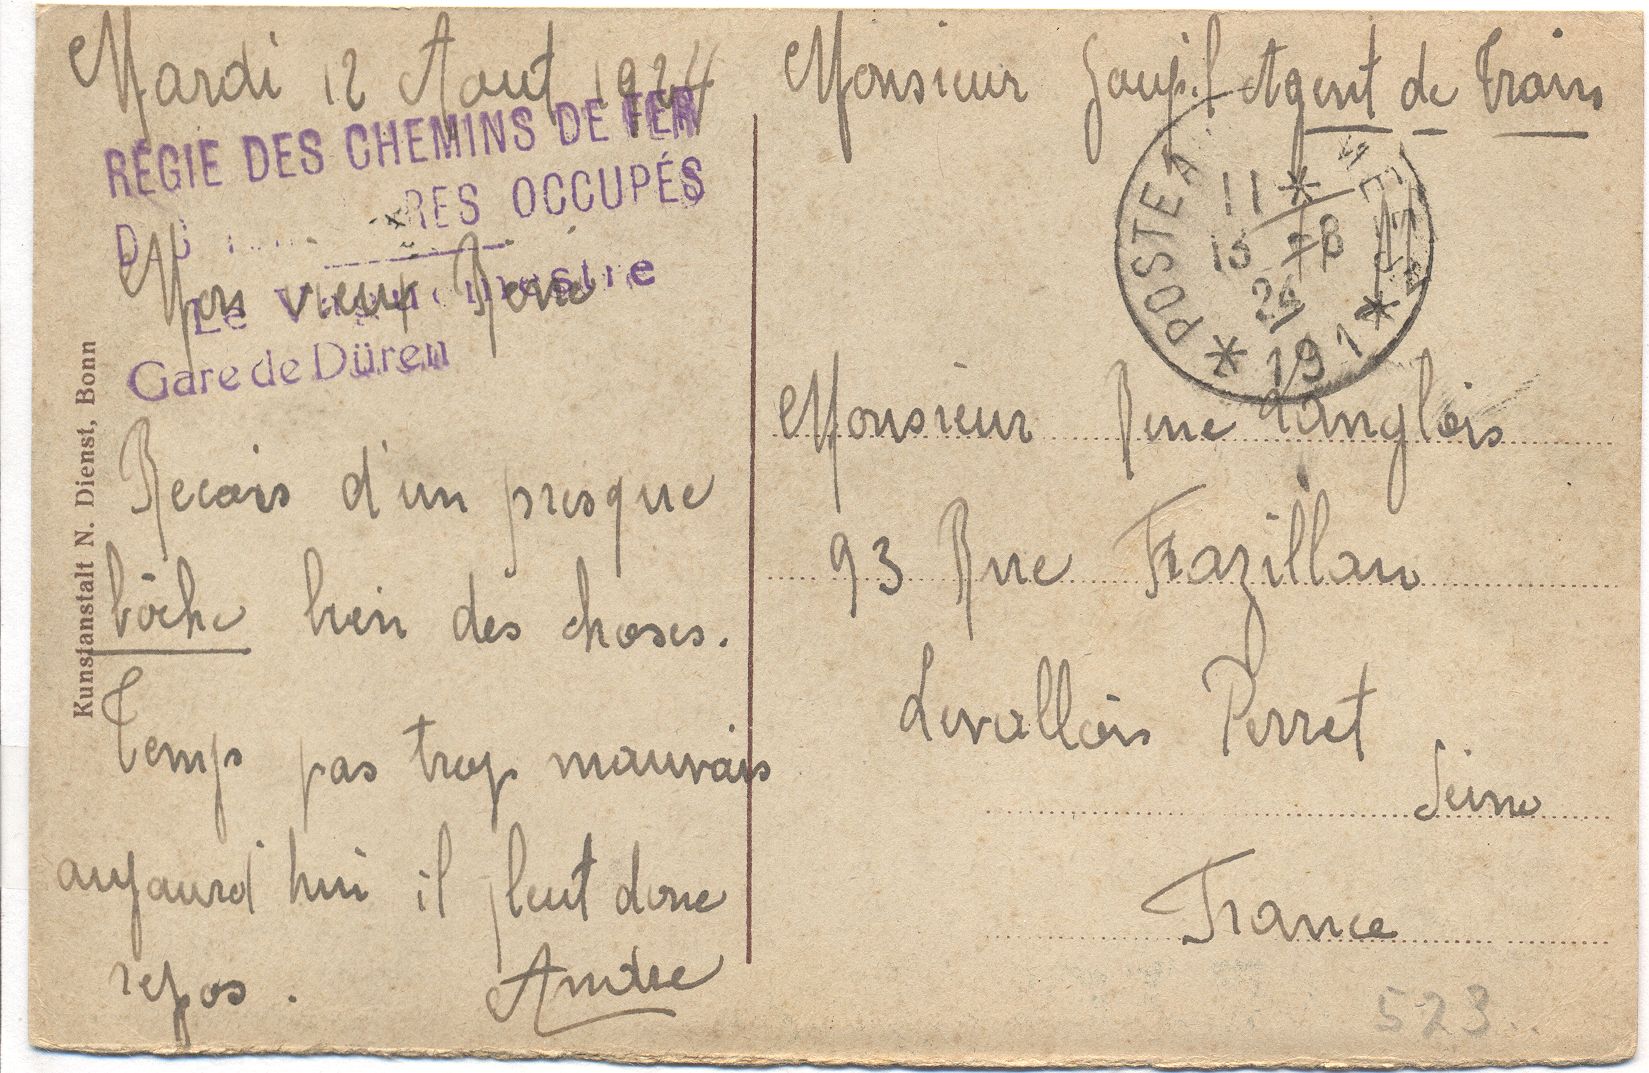 Mardi 12 Aout 1924
RÉGIE DES CHEMINS DE FER
RES OCCUPÉS
Mon vieux René
Le Vaguemestre
Gare de Düren
Recois d'un presque
bôche bien des choses.
Temps pas trop mauvais
aujourd'hui il pleut donc
repos.
André
Kunstanstalt N. Dienst, Bonn
Monsieur Goupil Agent de Train
POSTE AUX ARMÉES
11 *
13 -8
24
* 191 *
Monsieur Rene Langlois
93 Rue Frazillau
Levallois Perret
Seine
France
523